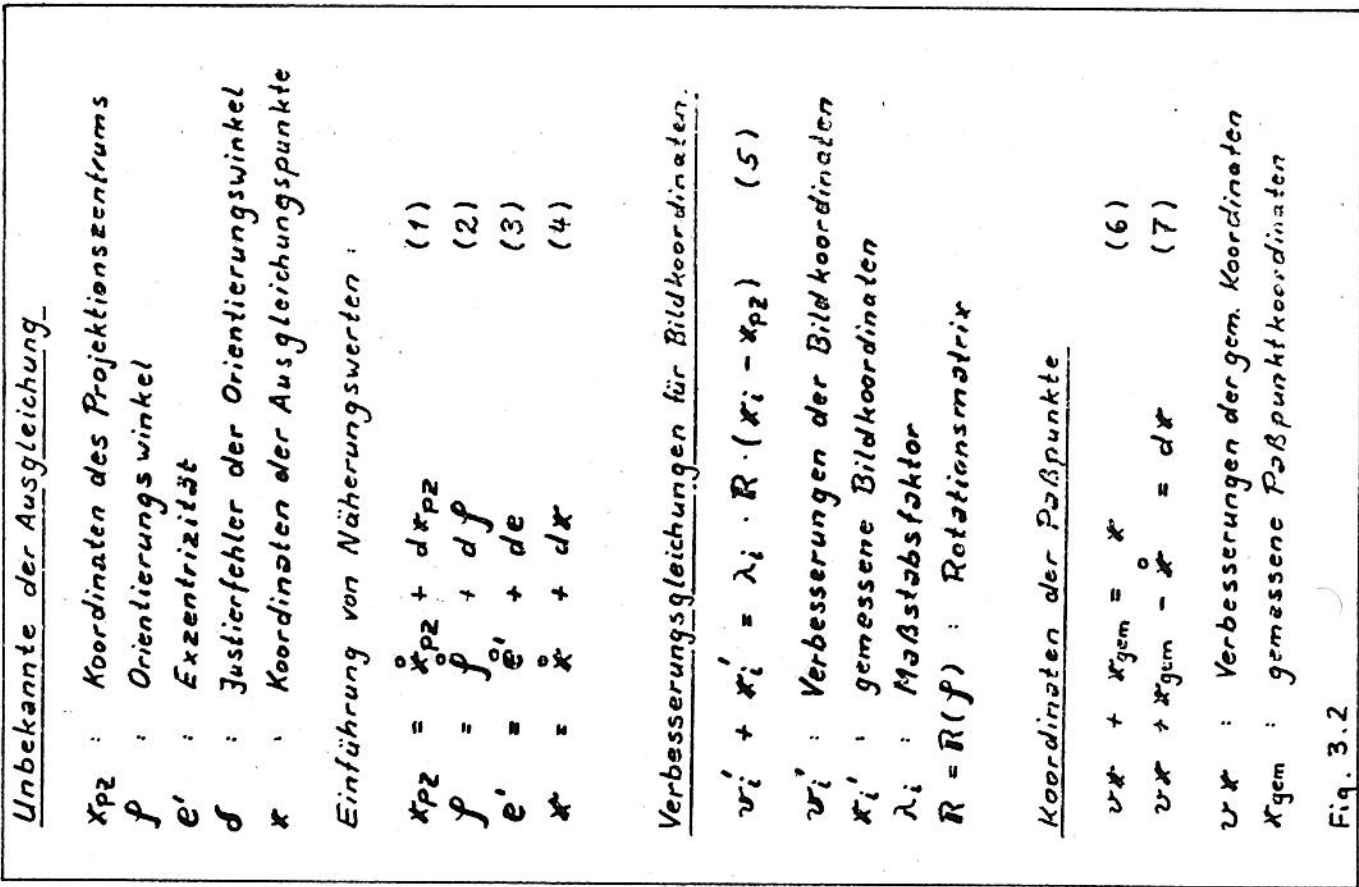 Unbekannte der Ausgleichung
x_PZ : Koordinaten des Projektionszentrums
ρ : Orientierungswinkel
e' : Exzentrizität
δ : Justierfehler der Orientierungswinkel
x : Koordinaten der Ausgleichungspunkte
Einführung von Näherungswerten :
x_PZ = x̊_PZ + dx_PZ (1)
ρ = ρ̊ + dρ (2)
e' = e̊' + de (3)
x = x̊ + dx (4)
Verbesserungsgleichungen für Bildkoordinaten.
v_i' + x_i' = λ_i · R · (x_i - x_PZ) (5)
v_i' : Verbesserungen der Bildkoordinaten
x_i' : gemessene Bildkoordinaten
λ_i : Maßstabsfaktor
R = R(ρ) : Rotationsmatrix
Koordinaten der Paßpunkte
vx + x_gem = x (6)
vx + x_gem - x̊ = dx (7)
vx : Verbesserungen der gem. Koordinaten
x_gem : gemessene Paßpunktkoordinaten
Fig. 3.2